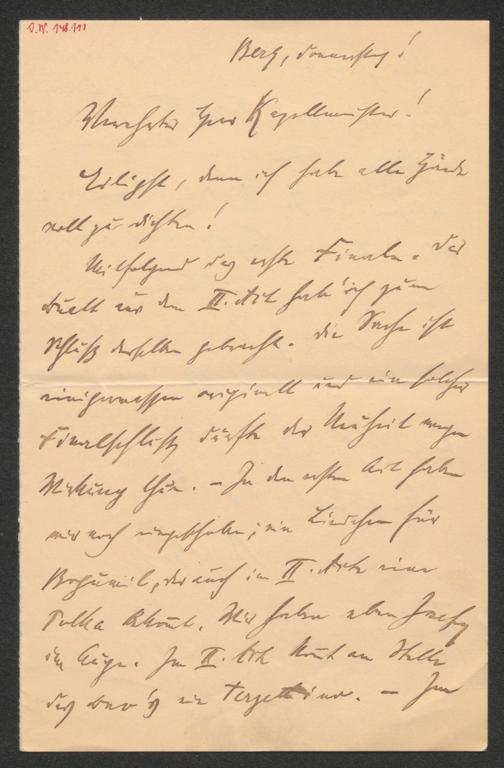 J.N. 148.111
Berg, Donnerstag!
Verehrter Herr Kapellmeister!
Eiligst, denn ich habe alle Hände
voll zu dichten!
Mitfolgend das erste Finale. Das
Duett aus dem II. Akt hab' ich zum
Schluß desselben gebracht. Die Sache ist
einigermassen originell und ein solcher
Finalschluß dürfte der Neuheit wegen
Wirkung thun. – In den ersten Act haben
wir noch eingeschoben; ein Liedchen für
Bogumil, der auch im II. Akte eine
Polka kommt. Wir haben eben Josefy
im Auge. Im II. Akt kommt an Stelle
des Duo's ein Terzettino. – Im